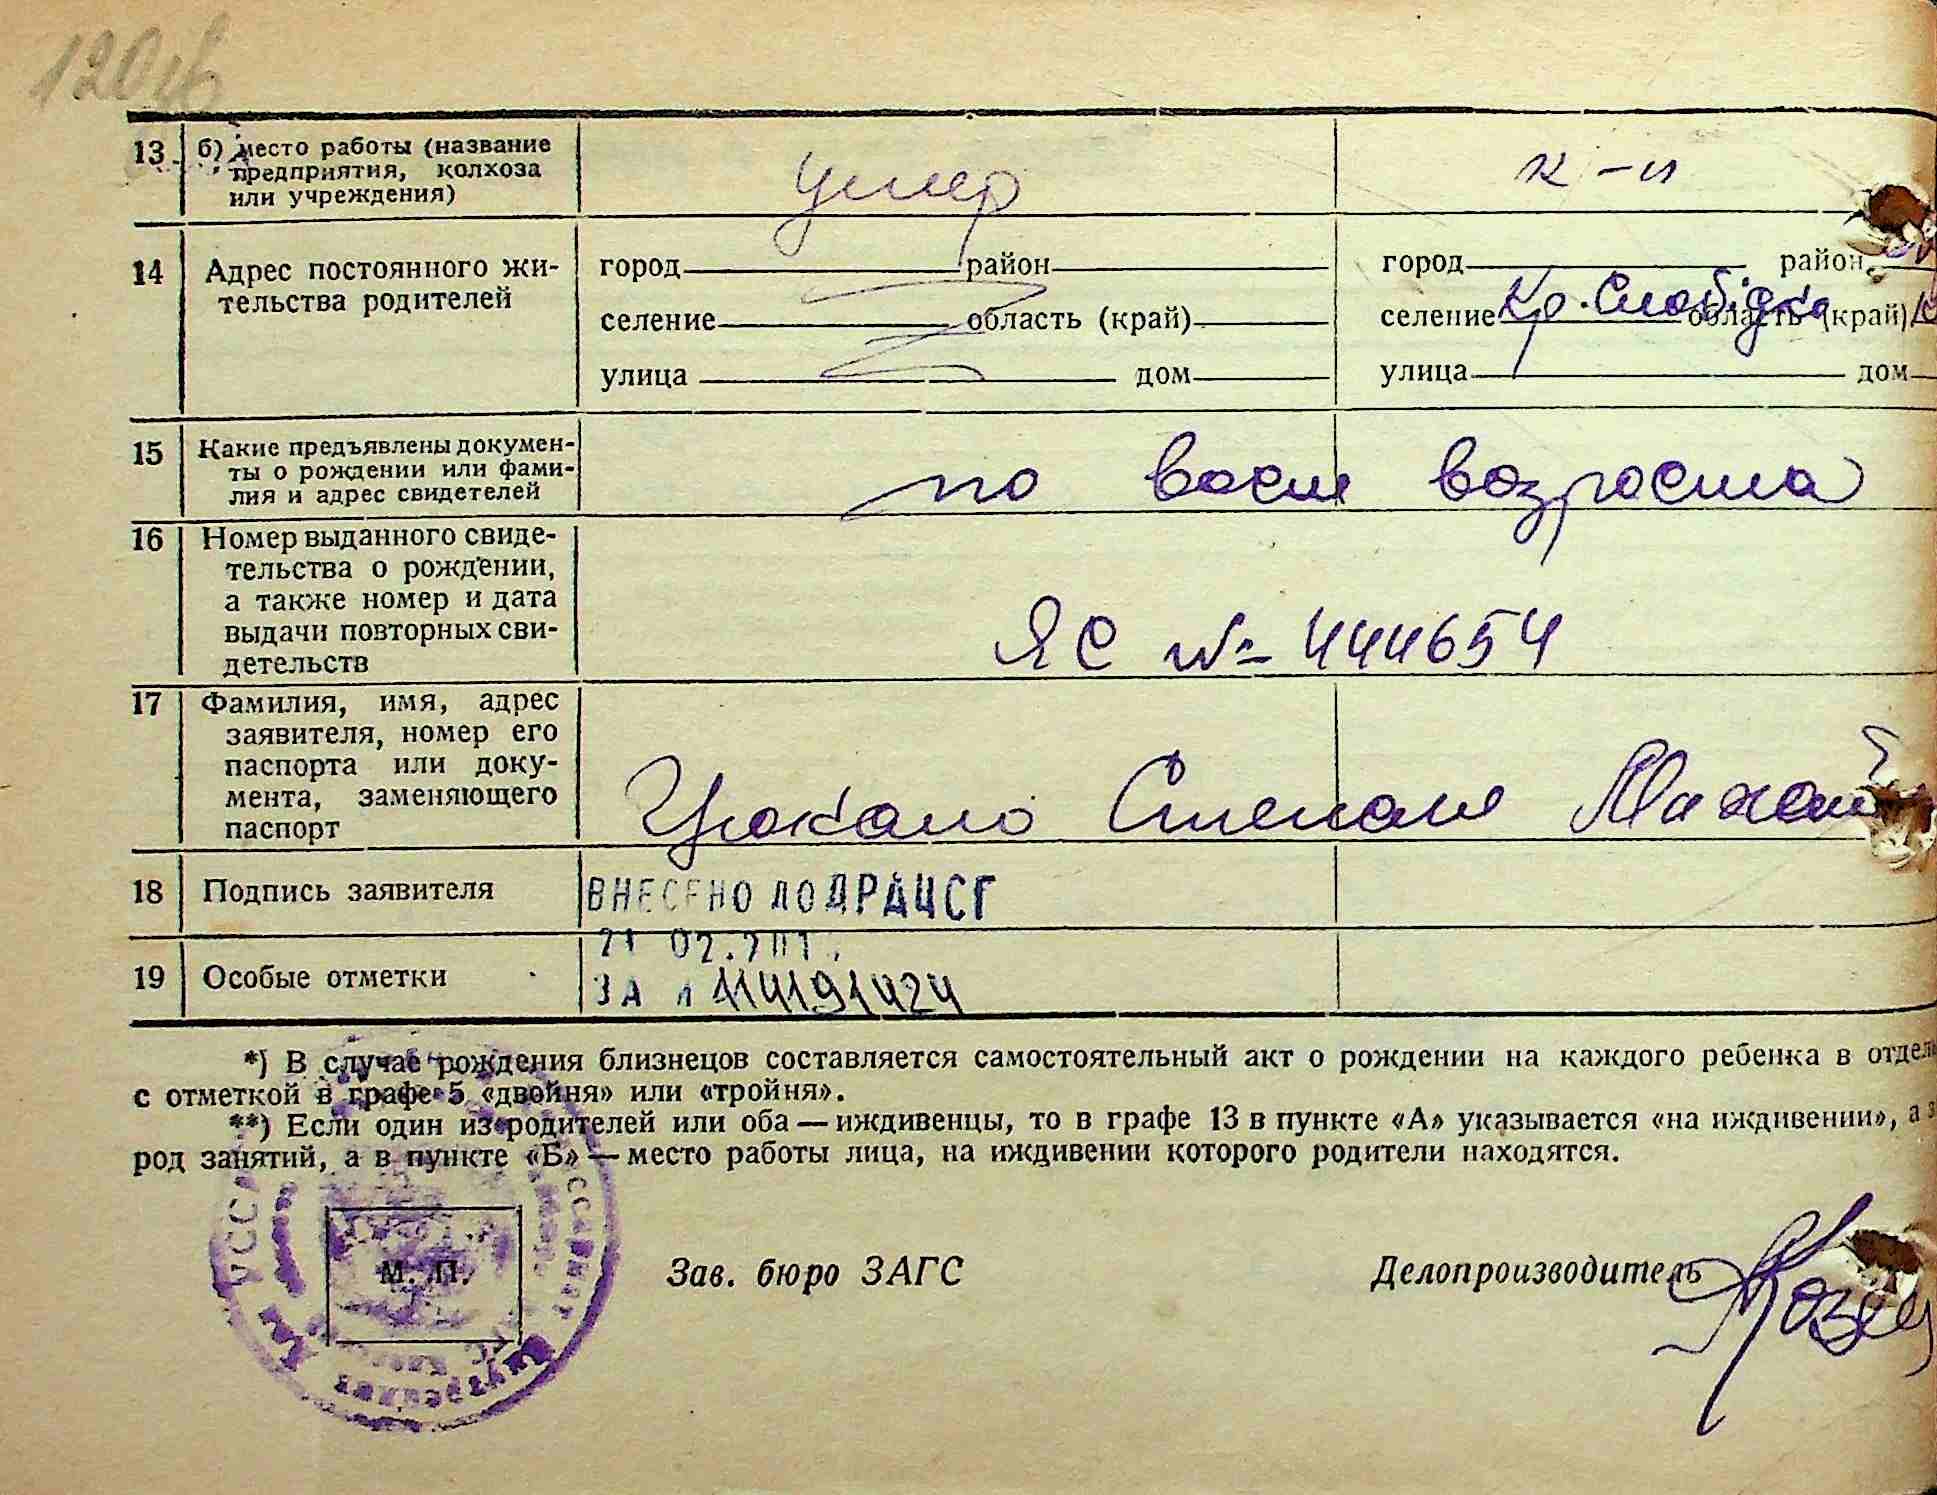 13 б) место работы (название
предприятия, колхоза
или учреждения)
умер
к-п
14 Адрес постоянного жи-
тельства родителей
город район
селение область (край)
улица дом
город район
селение Кр. Слобідка область (край)
улица дом
15 Какие предъявлены докумен-
ты о рождении или фами-
лия и адрес свидетелей
по восст возраста
16 Номер выданного свиде-
тельства о рождении,
а также номер и дата
выдачи повторных сви-
детельств
ЯС № 444654
17 Фамилия, имя, адрес
заявителя, номер его
паспорта или доку-
мента, заменяющего
паспорт
Цюкало Степан
18 Подпись заявителя
ВНЕСЕНО ДО ДРАЦСГ
19 Особые отметки
ЗА
*) В случае рождения близнецов составляется самостоятельный акт о рождении на каждого ребенка в отдель
с отметкой в графе 5 «двойня» или «тройня».
**) Если один из родителей или оба — иждивенцы, то в графе 13 в пункте «А» указывается «на иждивении», а з
род занятий, а в пункте «Б» — место работы лица, на иждивении которого родители находятся.
УССР
М. П.
Зав. бюро ЗАГС
Делопроизводитель